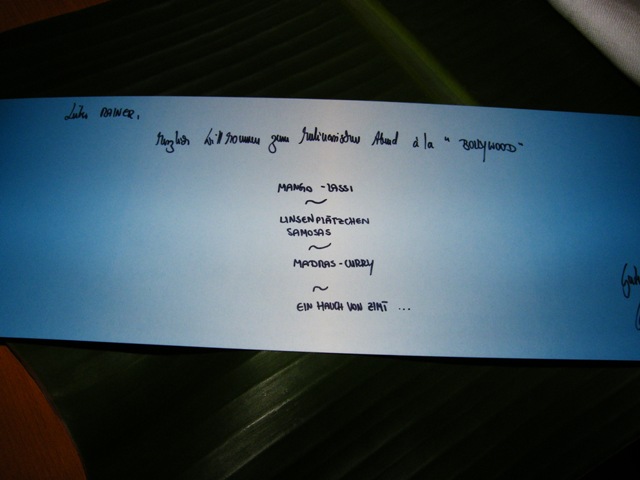 Lieber RAINER,
Herzlich Willkommen zum kulinarischen Abend à la "BOLLYWOOD"
MANGO - LASSI
~
LINSENPLÄTZCHEN
SAMOSAS
~
MADRAS - CURRY
~
EIN HAUCH VON ZIMT ...